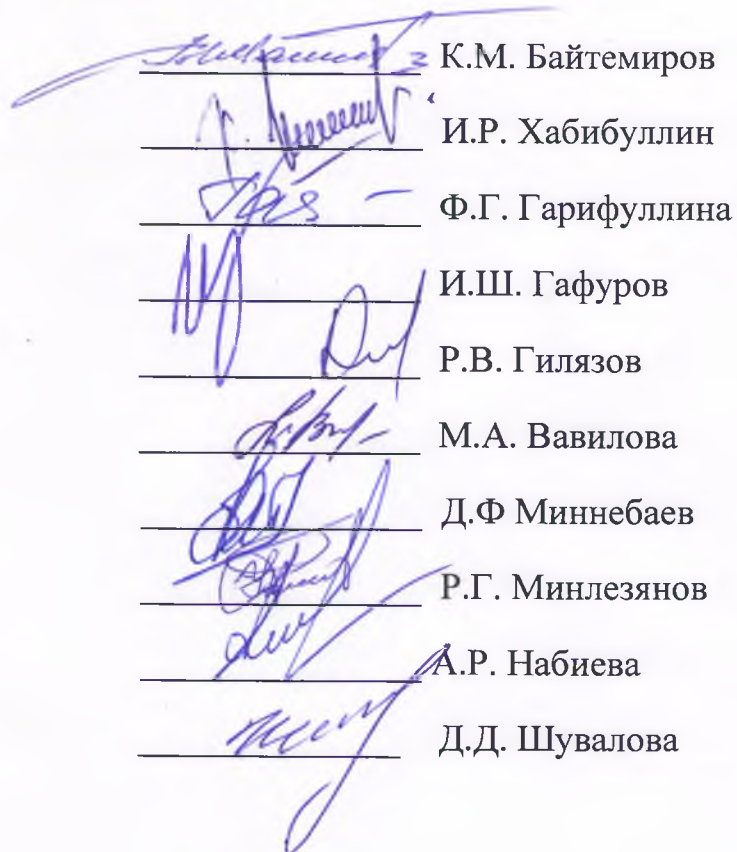 К.М. Байтемиров
И.Р. Хабибуллин
Ф.Г. Гарифуллина
И.Ш. Гафуров
Р.В. Гилязов
М.А. Вавилова
Д.Ф Миннебаев
Р.Г. Минлезянов
А.Р. Набиева
Д.Д. Шувалова